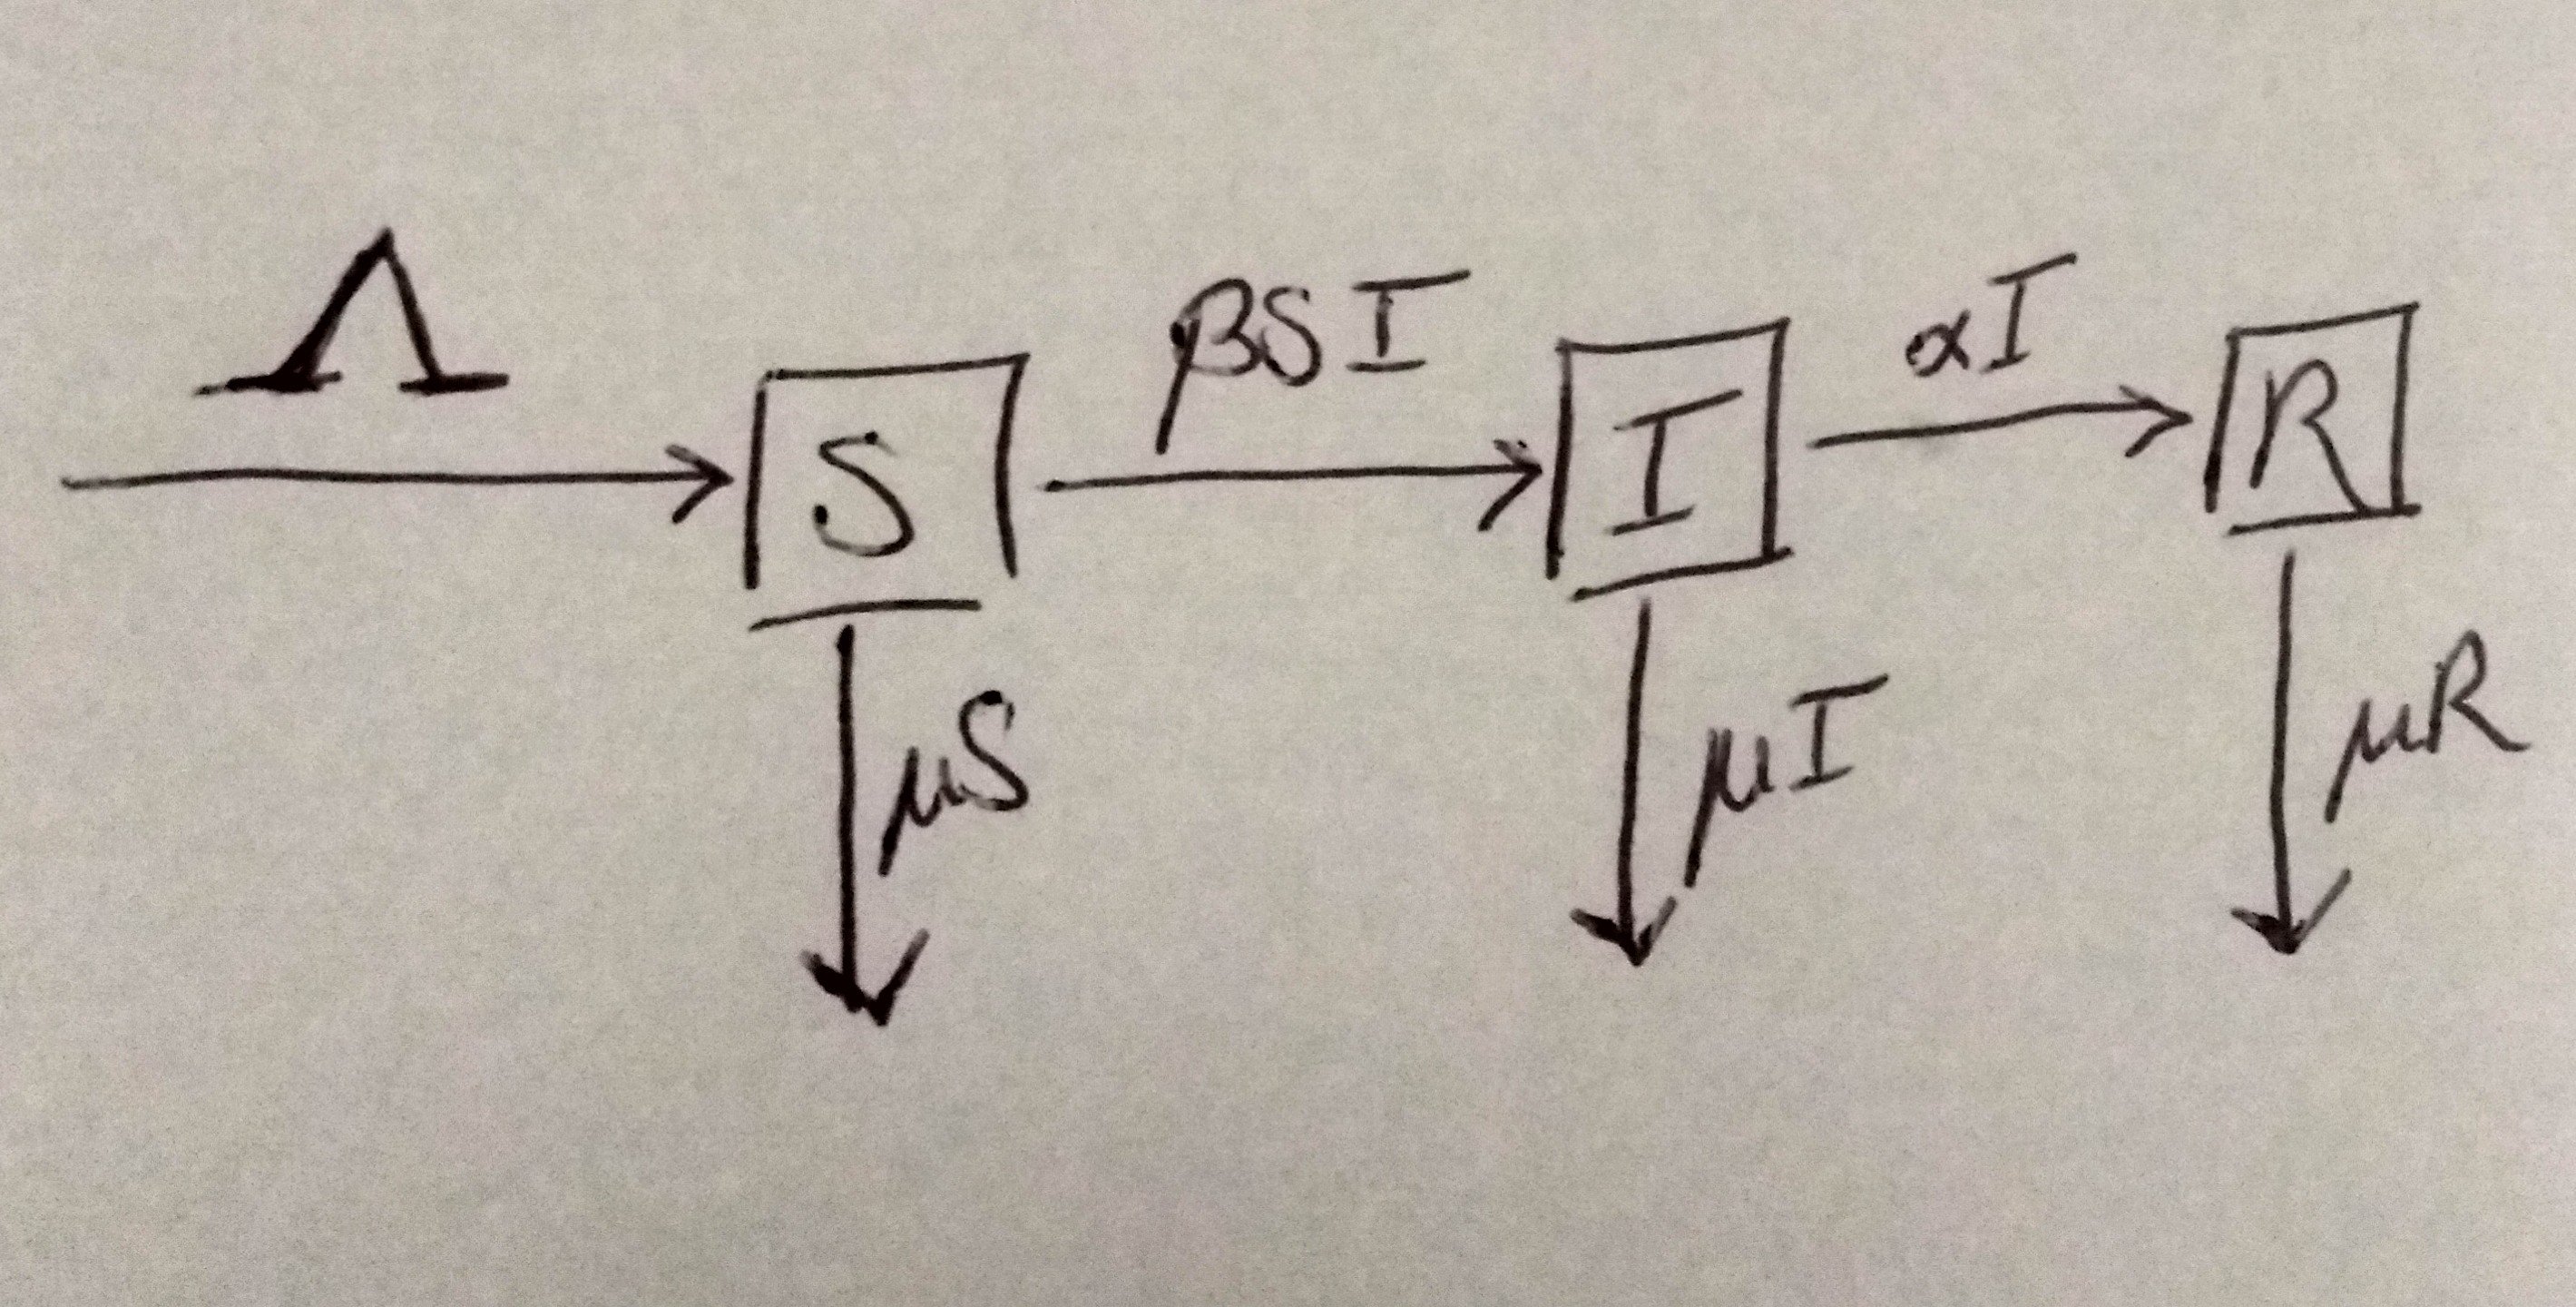 Λ
βSI
αI
S
I
R
μS
μI
μR